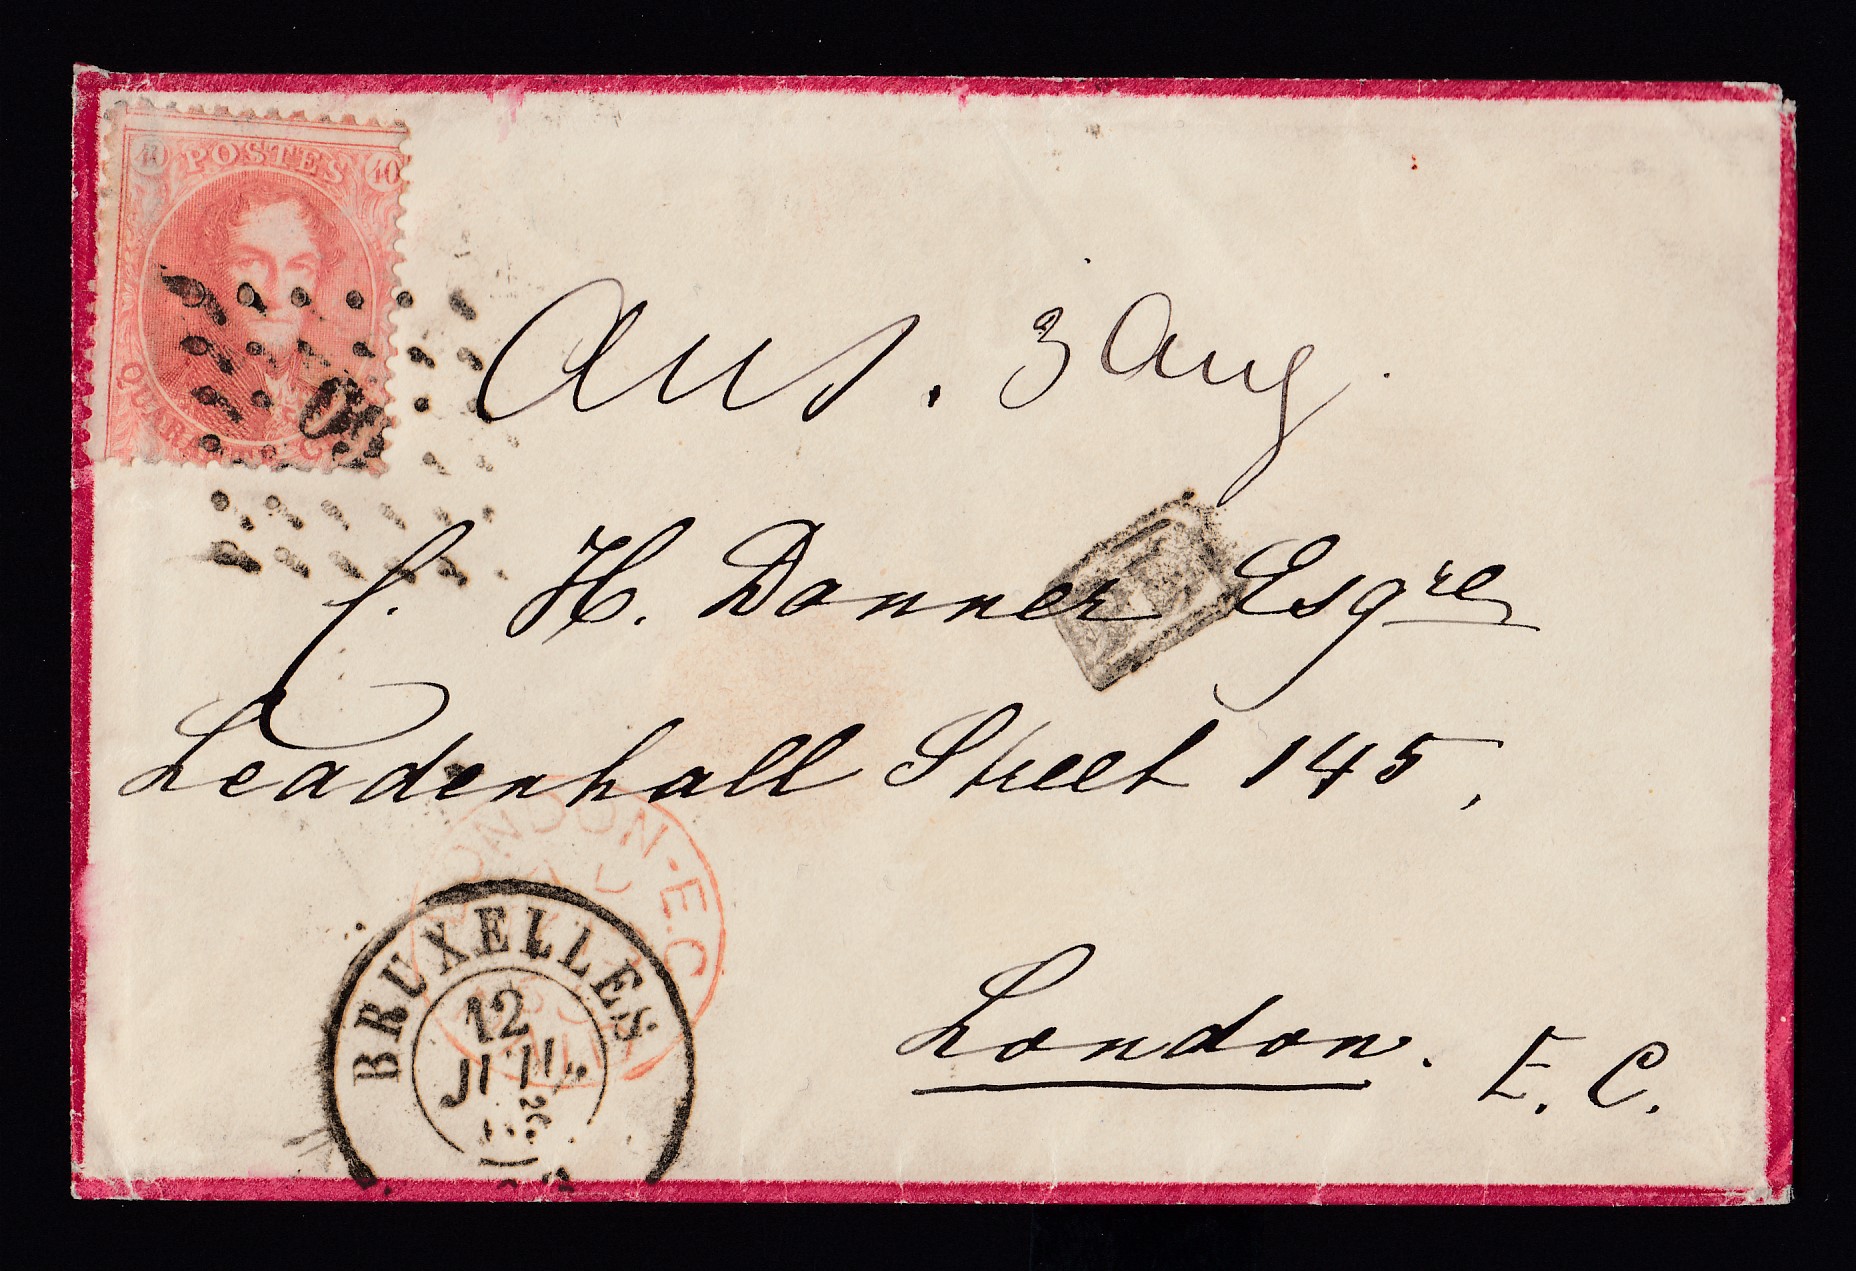 40 POSTES 40
QUARANTE C
60
Ans. 3 Aug.
C. H. Donner Esqre
Leadenhall Street 145,
LONDON-E.C
BRUXELLES
12
JUIL
London. E. C.